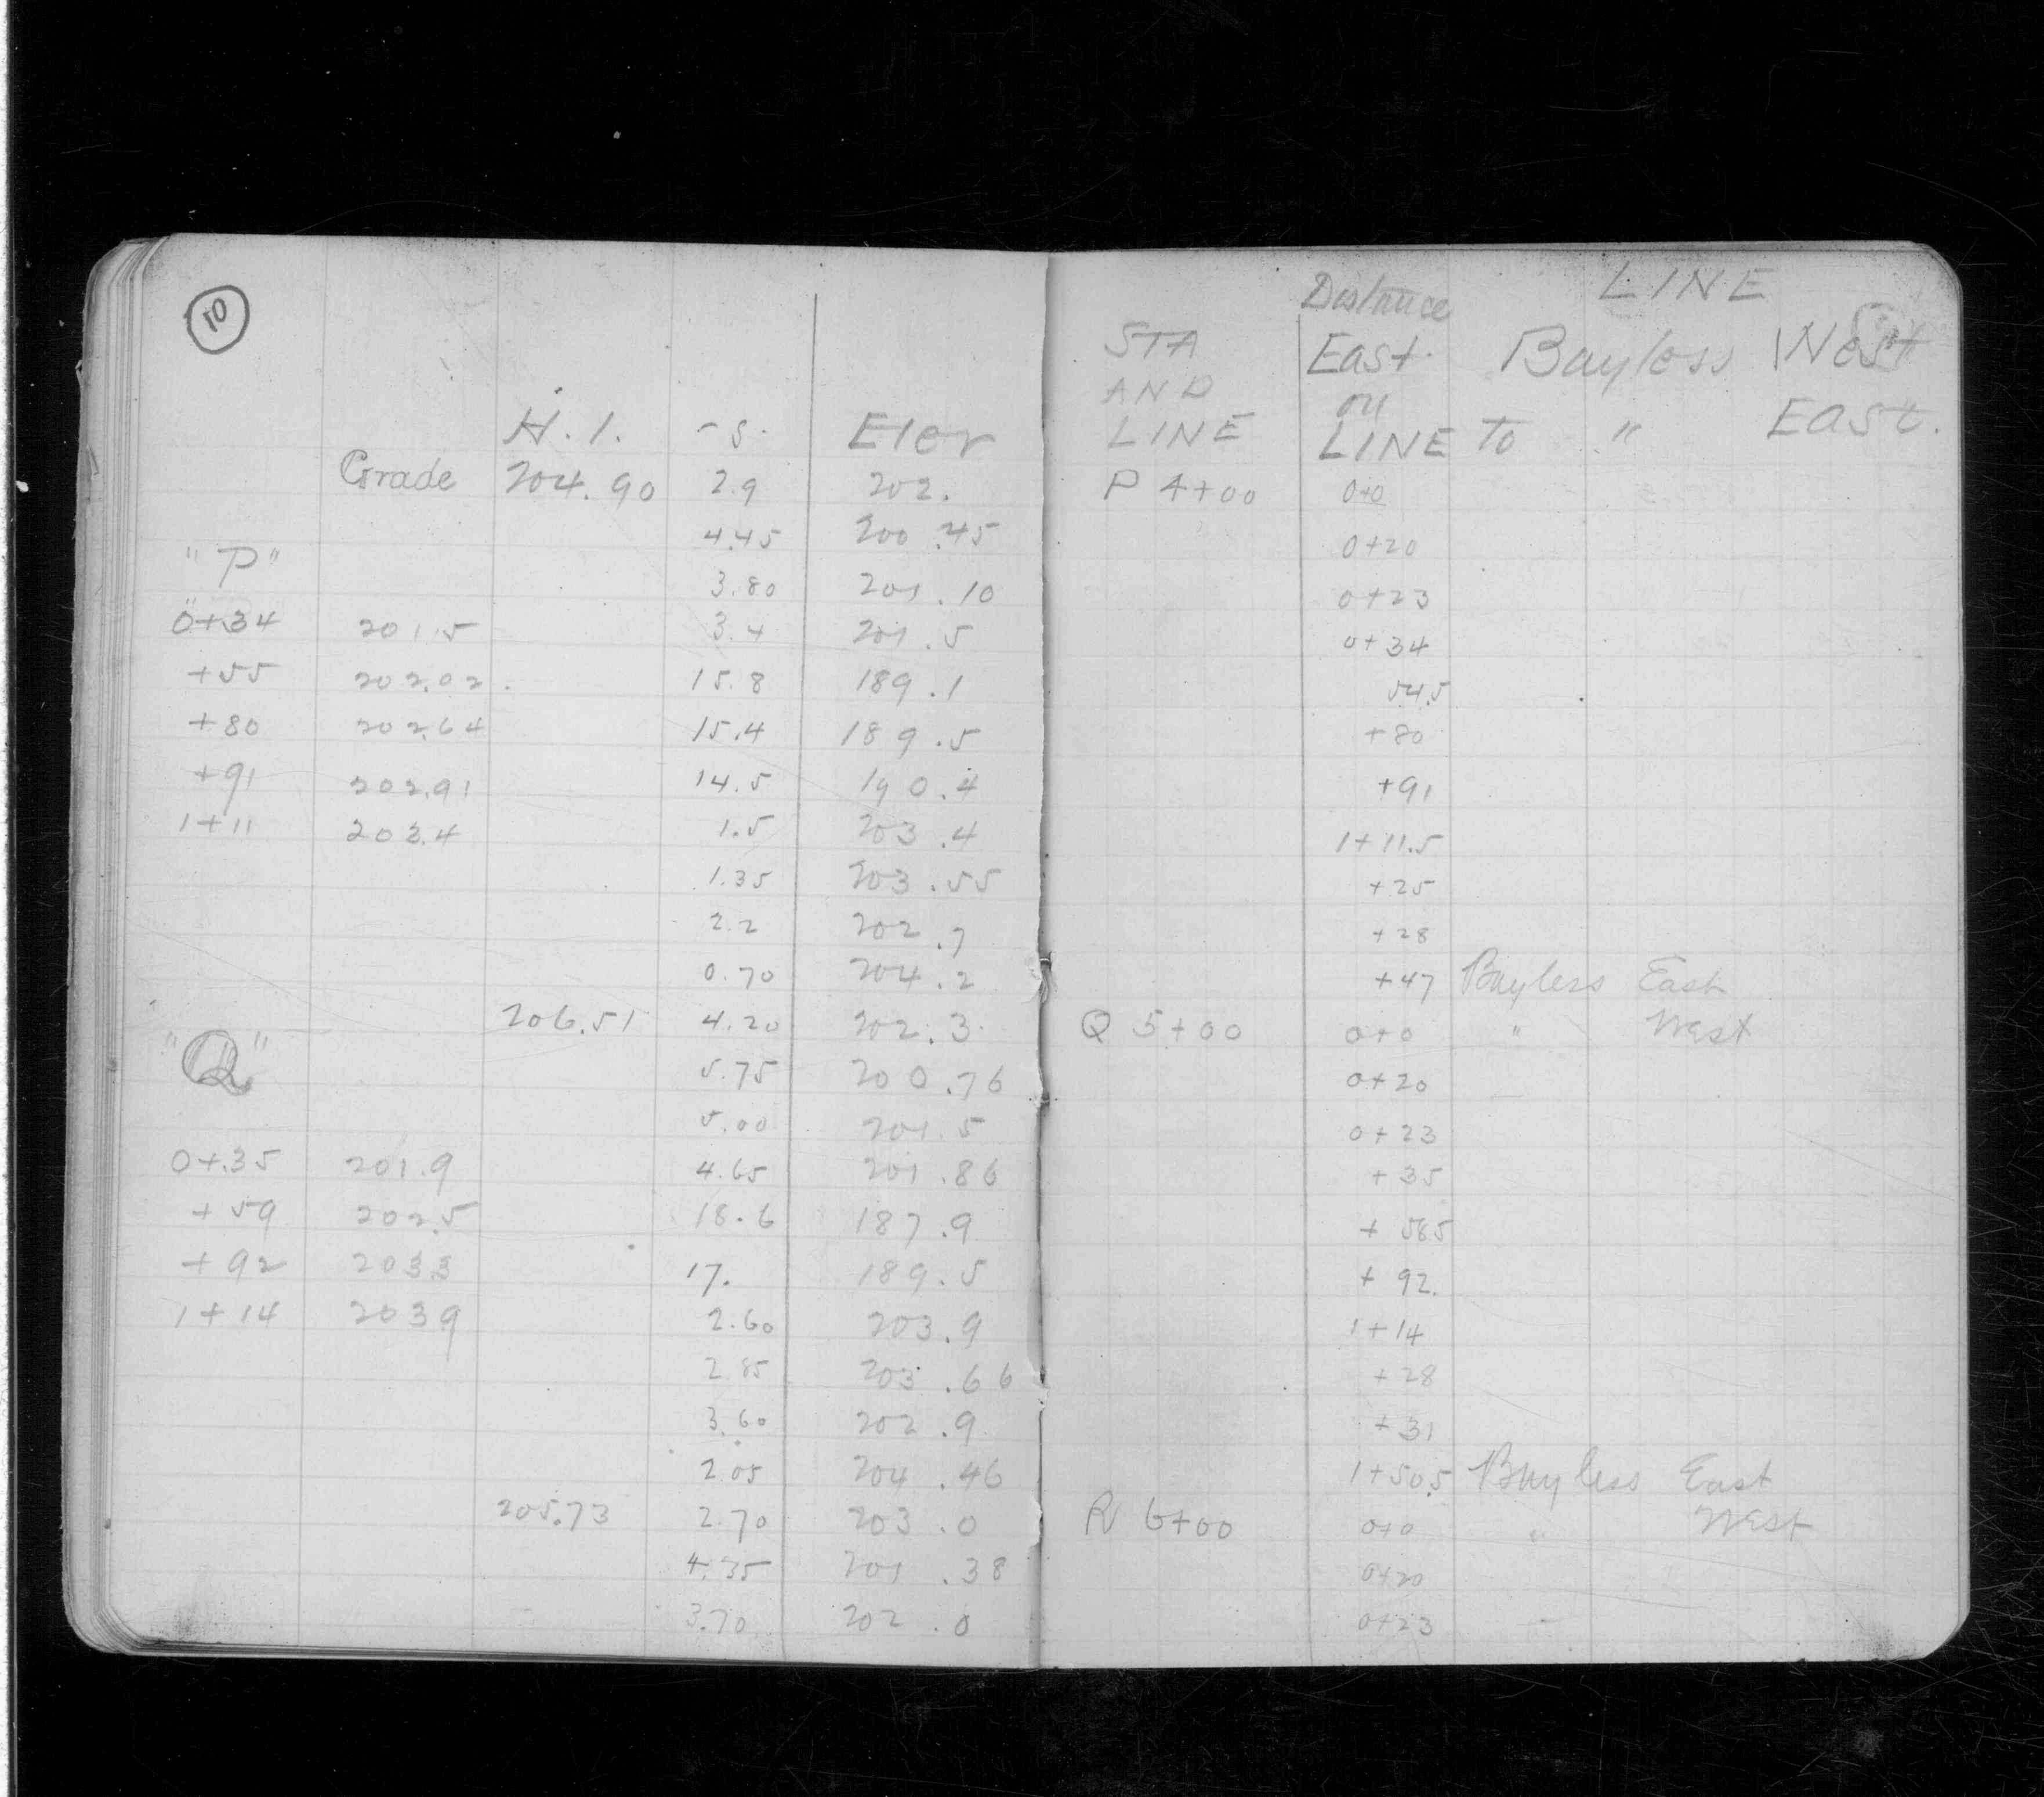 10
H.I. -S. Elev
Grade 204.90 2.9 202.
4.45 200.45
"P"
3.80 201.10
0+34 201.5 3.4 201.5
+55 202.02. 15.8 189.1
+80 202.64 15.4 189.5
+91 202.91 14.5 190.4
1+11 203.4 1.5 203.4
1.35 203.55
2.2 202.7
0.70 204.2
206.51 4.20 202.3
"Q"
5.75 200.76
5.00 201.5
0+35 201.9 4.65 201.86
+59 202.5 18.6 187.9
+92 203.3 17. 189.5
1+14 203.9 2.60 203.9
2.85 203.66
3.60 202.9
2.05 204.46
205.73 2.70 203.0
4.35 201.38
3.70 202.0
Distance LINE
STA East Bayless West
AND on
LINE LINE To " EAST.
P 4+00 0+0
0+20
0+23
0+34
54.5
+80
+91
1+11.5
+25
+28
+47 Bayless East
Q 5+00 0+0 " West
0+20
0+23
+35
+58.5
+92.
1+14
+28
+31
1+50.5 Bayless East
R 6+00 0+0 " West
0+20
0+23